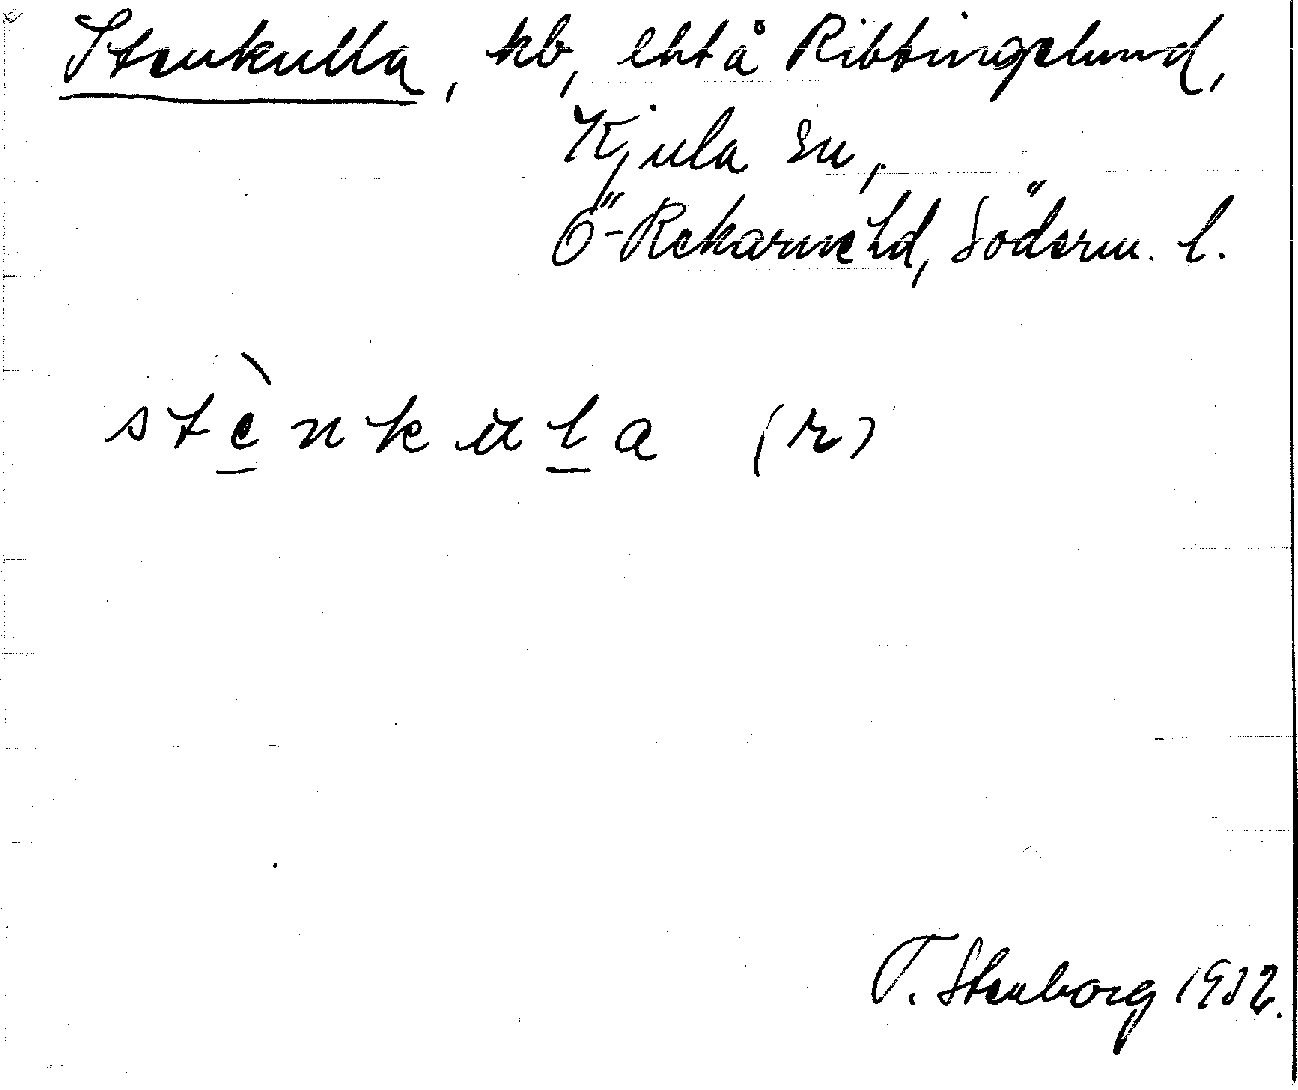 Stenkulla, kb, lht å Ribbingelund,
Kjula sn,
Ö-Rekarne hd, Söderm. l.
stènkula (r)
T. Stenborg 1932.